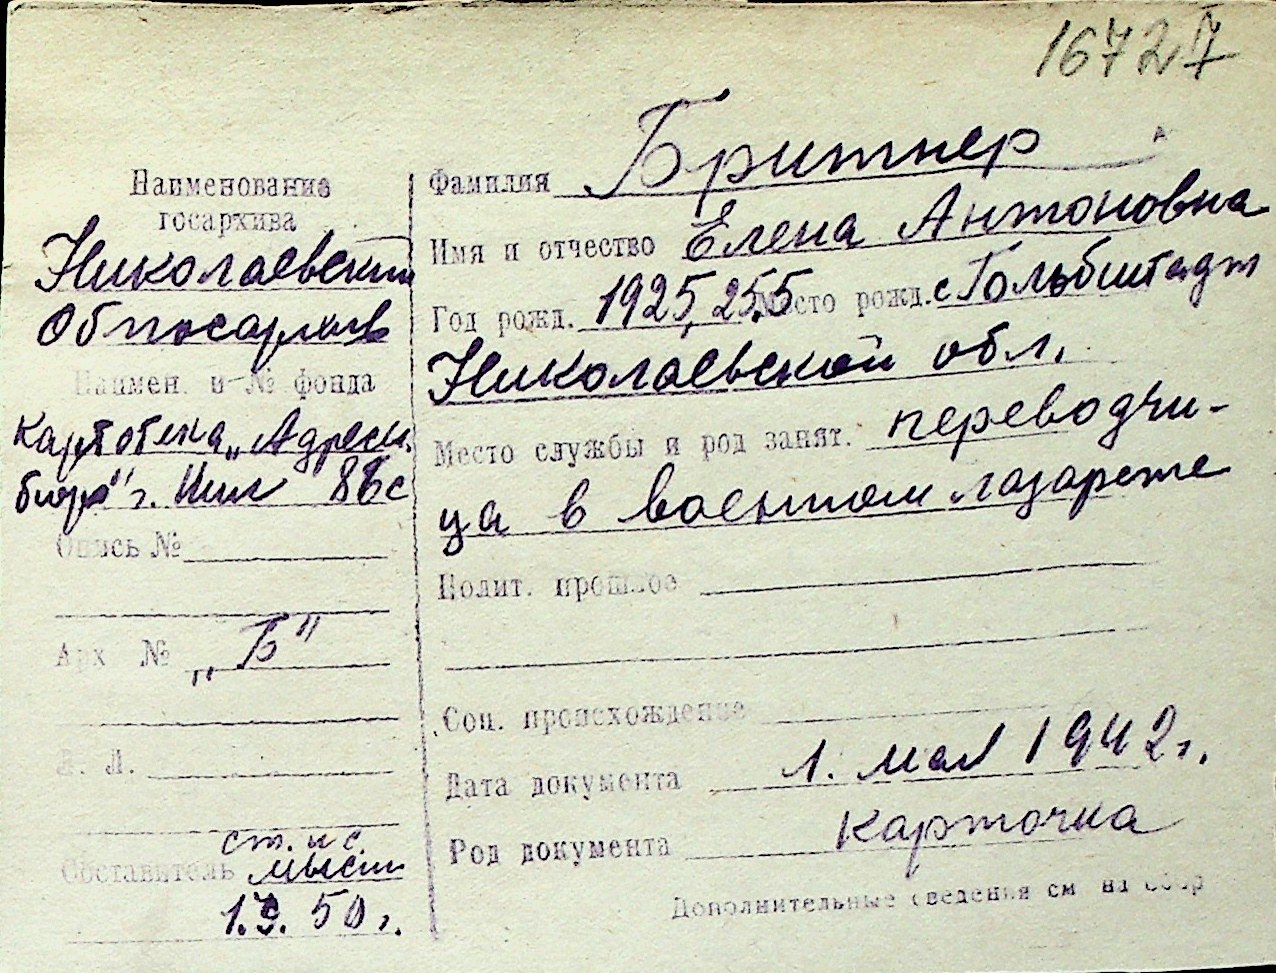 1672
Наименование
госархива
Николаевский
Облгосархив
Наимен. и № фонда
картотека „Адресн.
бюро" г. Ник 88с
Опись №
Арх № „Б"
Л. Л.
ст. н. с.
Составитель
50 г.
Фамилия Бритнер
Имя и отчество Елена Антоновна
Год рожд. 1925, 25.5 Место рожд. с Гольбштадт
Николаевской обл.
Место службы и род занят. переводчи-
ца в военном лазарете
Полит. прошлое
Соц. происхождение
Дата документа 1. мая 1942 г.
Род документа карточка
Дополнительные сведения см на обор